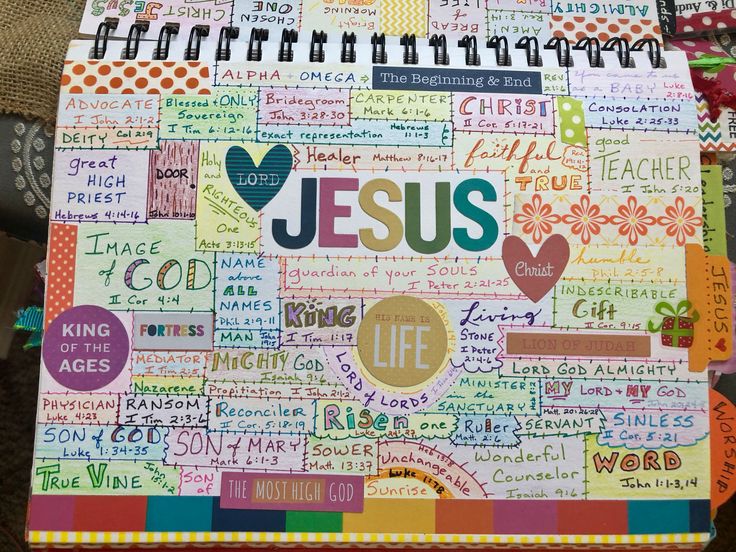 CHRIST
CHOSEN
ONE
MORNING
Bright
BREAD
of
Rev. 3:14
AMEN
ALMIGHTY
ALPHA + OMEGA
The Beginning & End
REV
you came to us
as a BABY Luke
2:8-16
ADVOCATE
I John 2:1-2
Blessed + ONLY
Sovereign
I Tim 6:12-16
Bridegroom
John 3:28-30
CARPENTER
Mark 6:1-6
CHRIST
II Cor. 5:17-21
CONSOLATION
Luke 2:25-33
DEITY Col 2:9
exact representation Hebrews
1:1-3
great
HIGH
PRIEST
Hebrews 4:14-16
DOOR!
John 10:1-10
Holy
and
RIGHTEOUS
One
Acts 3:13-15
LORD
Healer Matthew 8:16-17
faithful
and
TRUE
Rev.
good
TEACHER
I John 5:20
JESUS
IMAGE
of GOD
II Cor 4:4
NAME
above
ALL
NAMES
Phil 2:9-11
guardian of your SOULS
I Peter 2:21-25
Christ
humble
Phil 2:5-8
INDESCRIBABLE
Gift
II Cor. 9:15
JESUS
KING
OF THE
AGES
FORTRESS
MAN
KING
I Tim 1:17
HIS NAME IS
LIFE
Living
STONE
I Peter
2:4-6
LION OF JUDAH
MEDIATOR
I Tim 2:5
Nazarene
MIGHTY GOD
Isaiah 9:6
LORD of LORDS
I Tim
LORD GOD ALMIGHTY
Propitiation I John 2:1-2
MINISTER
in the
SANCTUARY
MY LORD + MY GOD
John 20:24-29
PHYSICIAN
Luke 4:23
RANSOM
I Tim 2:3-6
Reconciler
II Cor. 5:18-19
Risen one
Luke 24:
Ruler
Matt. 2:6
SERVANT
Matt. 20:26-28
SINLESS
II Cor. 5:21
WORSHIP
SON of GOD
Luke 1:34-35
SON of MARY
Mark 6:1-3
SOWER
Matt. 13:37
Unchangeable
Heb 13:8
Wonderful
Counselor
Isaiah 9:6
WORD
John 1:1-3,14
TRUE VINE
John
SON
of
THE MOST HIGH GOD
Luke 1:78
Sunrise